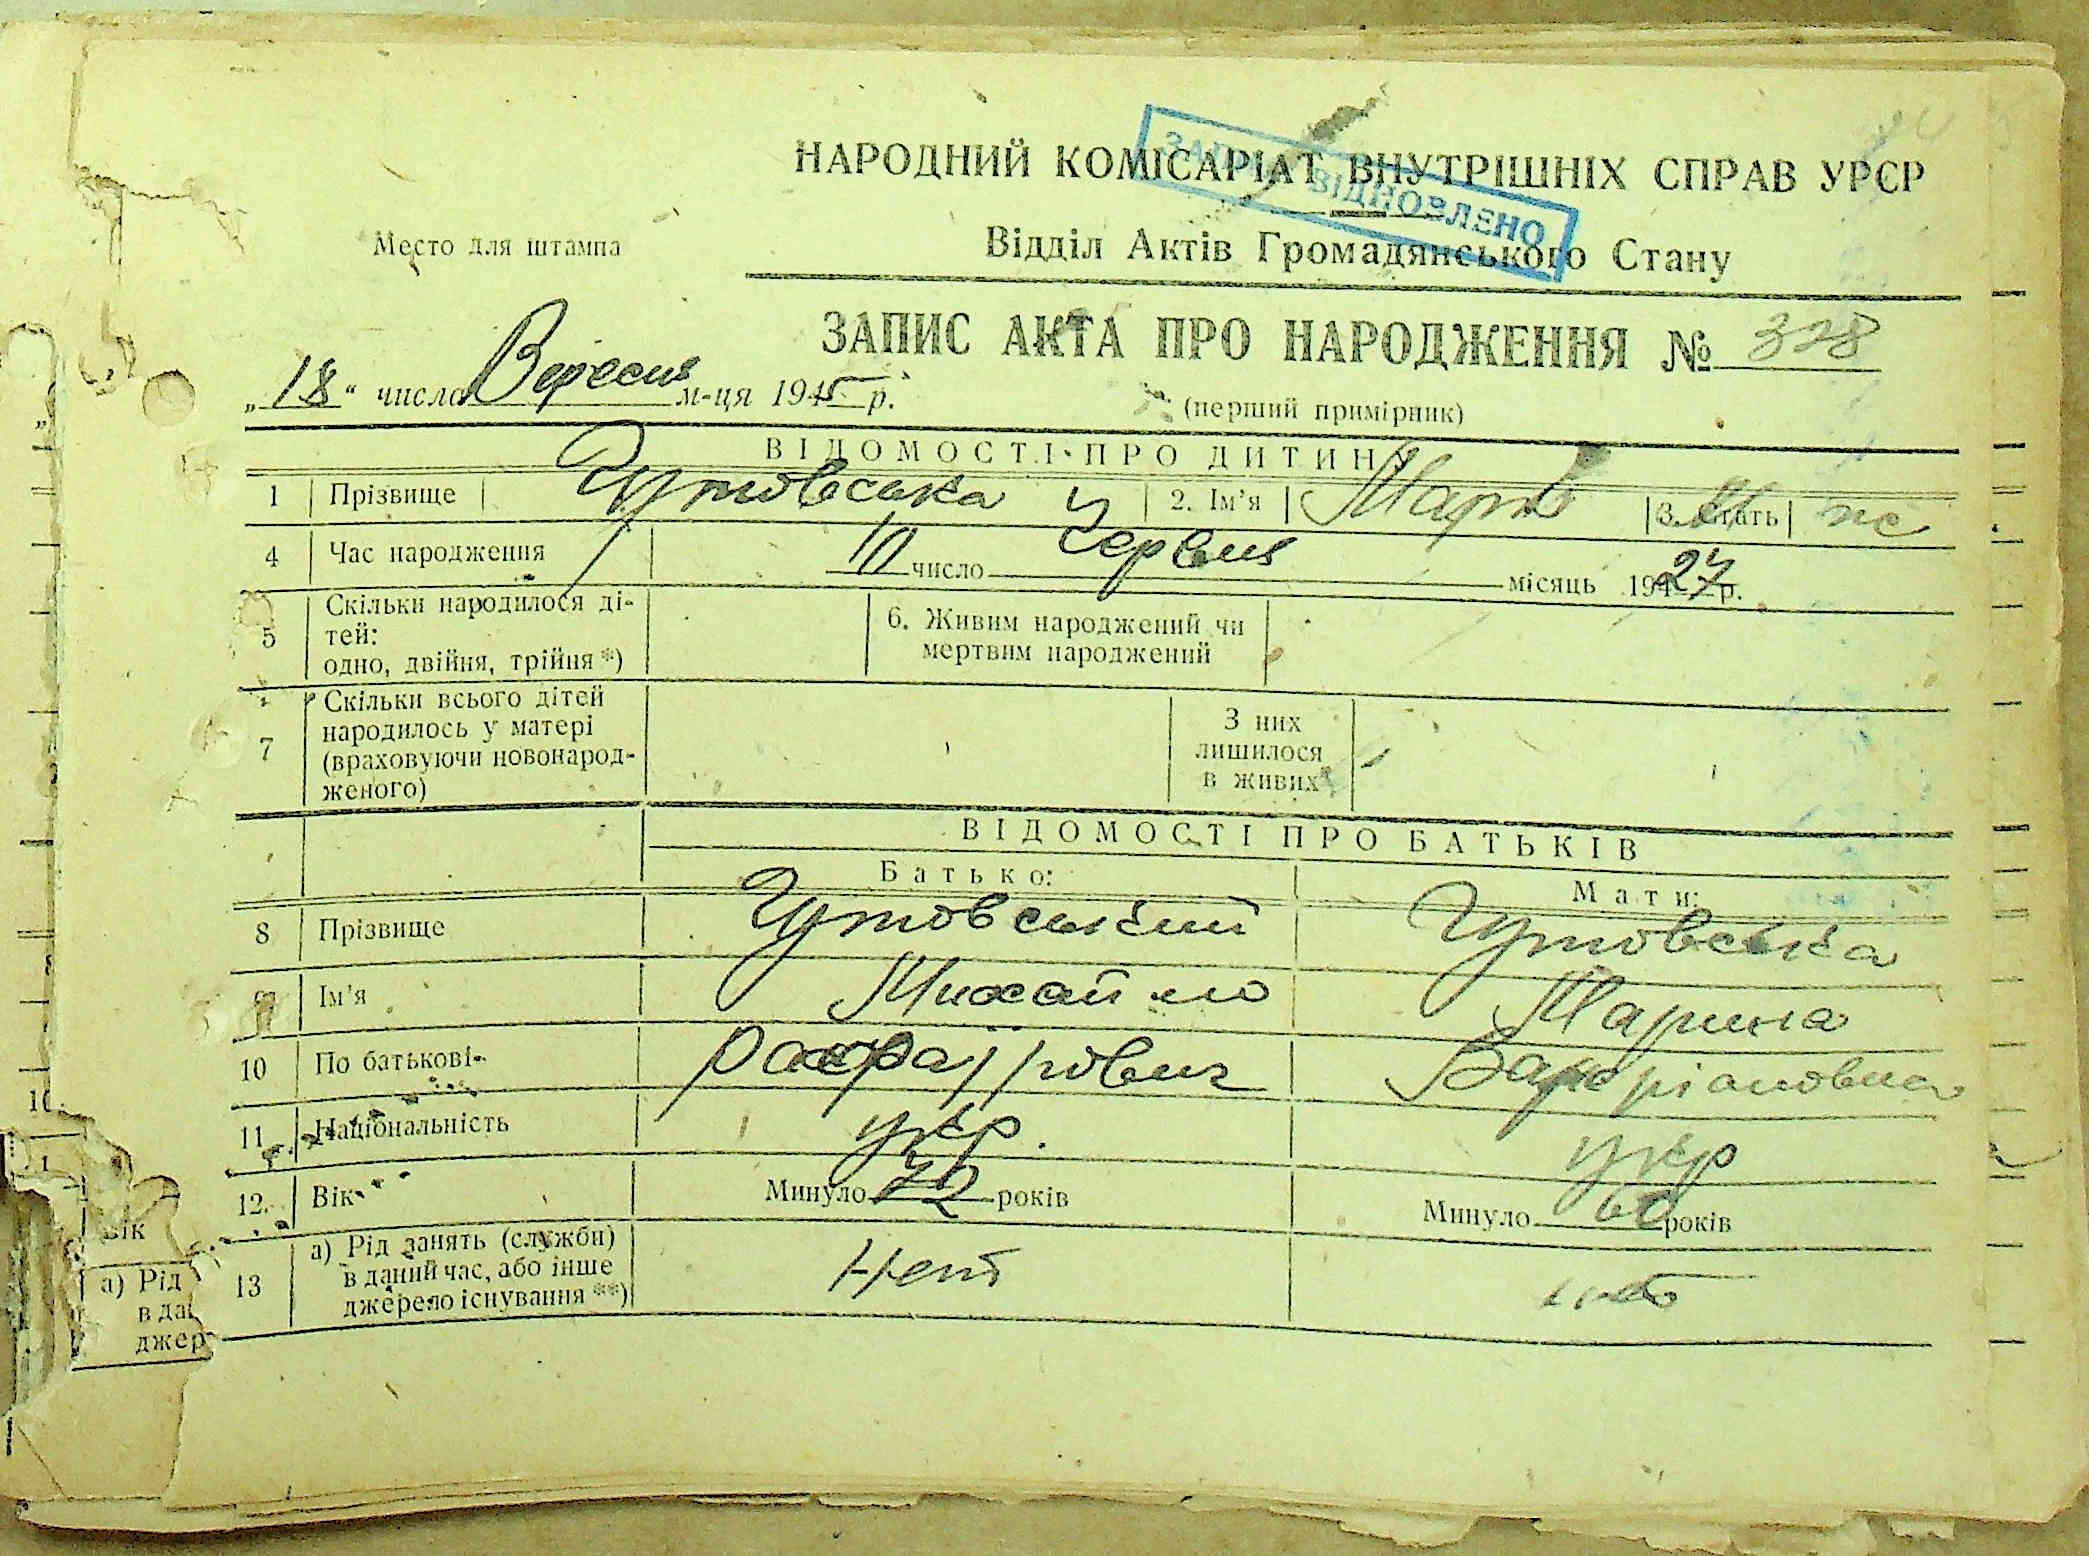 НАРОДНИЙ КОМІСАРІАТ ВНУТРІШНІХ СПРАВ УРСР
ВІДНОВЛЕНО
Место для штампа
Відділ Актів Громадянського Стану
ЗАПИС АКТА ПРО НАРОДЖЕННЯ № 328
„18“ число Вересня м-ця 1945 р.
(перший примірник)
ВІДОМОСТІ ПРО ДИТИНУ
1 Прізвище Чутовська 2. Ім'я 3. Стать
4 Час народження 10 число Червня місяць 1927 р.
5 Скільки народилося ді-
тей:
одно, двійня, трійня *)
6. Живим народжений чи
мертвим народжений
7 Скільки всього дітей
народилось у матері
(враховуючи новонарод-
женого)
З них
лишилося
в живих
ВІДОМОСТІ ПРО БАТЬКІВ
Батько: Мати:
8 Прізвище Чутовський Чутовська
9 Ім'я Михайло Марина
10 По батькові
11 Національність укр. укр
12. Вік Минуло 72 років Минуло 60 років
13 а) Рід занять (служби)
в даний час, або інше
джерело існування **)
Нет нет
Вік
а) Рід
в да
джер